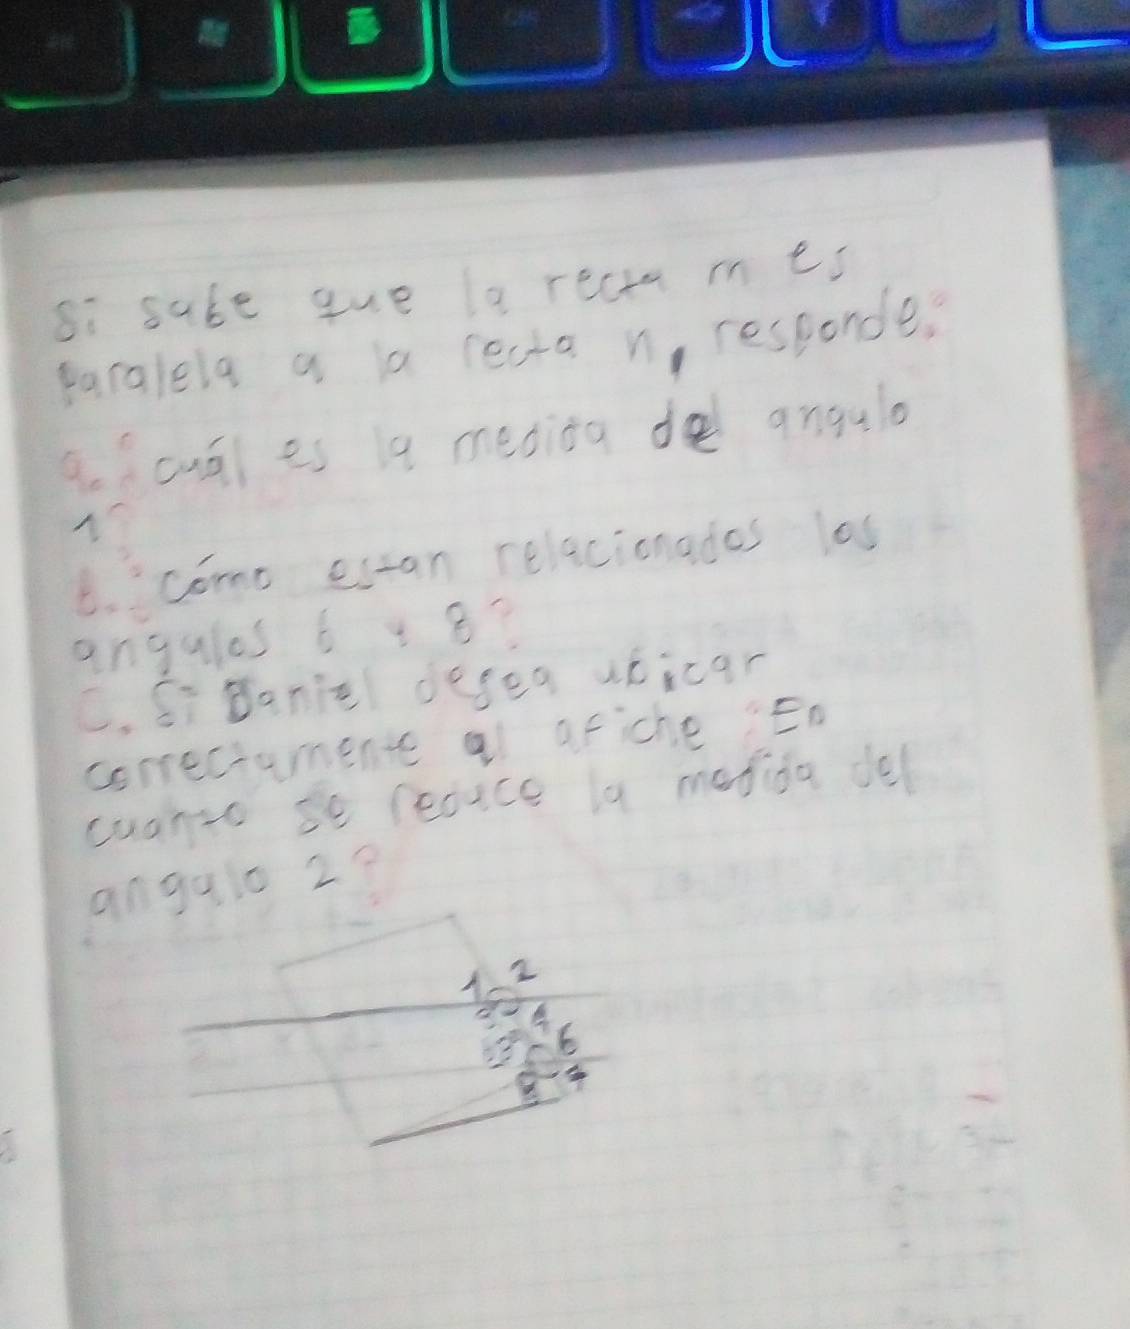 Si sabe que la recta m es
paralela a la recta n, responde:
a. ¿cuál es la medida del angulo
1?
b. ¿cómo estan relacionados los
angulos 6 y 8?
C. Si Daniel desea ubicar
correctamente al afiche ¿En
cuanto se reduce la medida del
angulo 2?
1 2
4
6
8 7